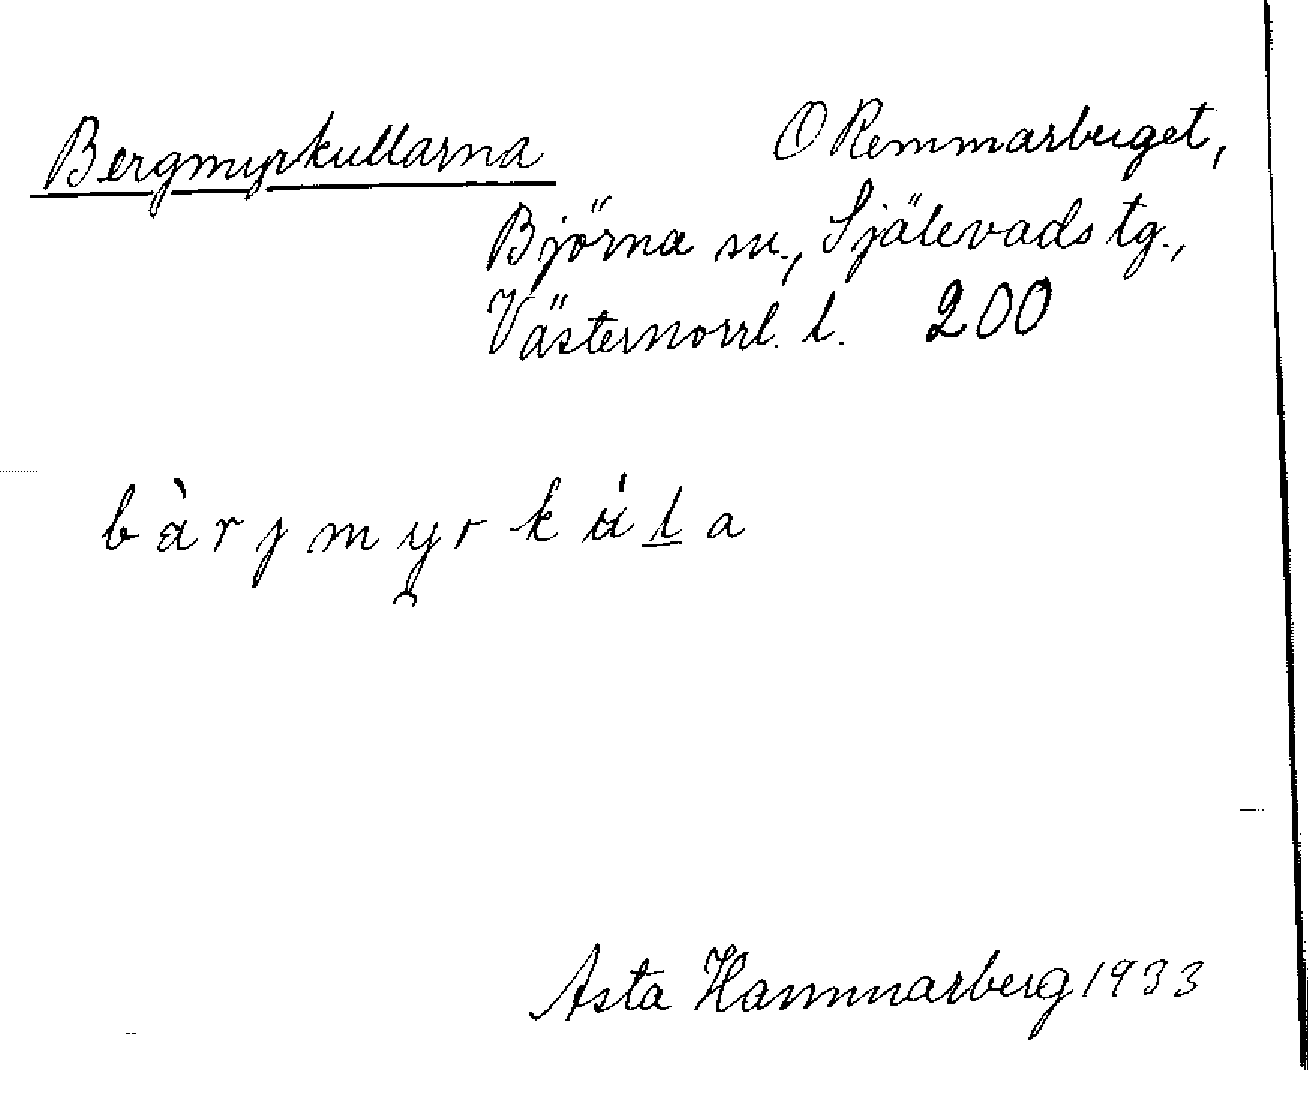 Bergmyrkullarna
O Remmarberget,
Björna sn., Själevads tg.,
Västernorrl. l. 200
bàrjmyrkúla
Asta Hammarberg 1933